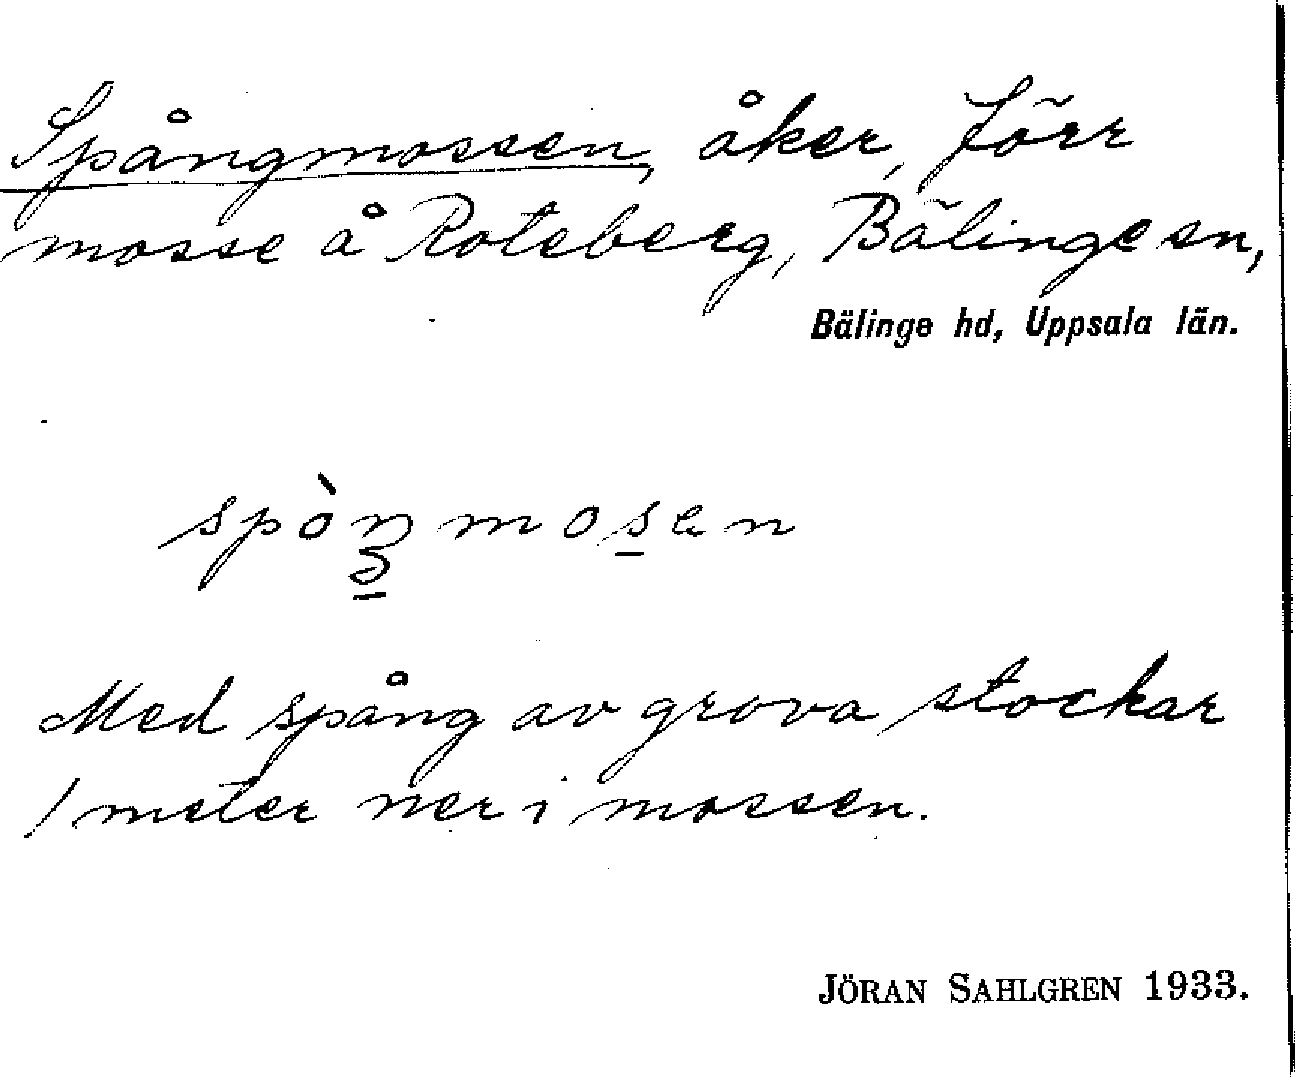 Spångmossen, åker, förr
mosse å Roteberg, Bälinge sn,
Bälinge hd, Uppsala län.
spòŋmosen
Med spång av grova stockar
1 meter ner i mossen.
JÖRAN SAHLGREN 1933.